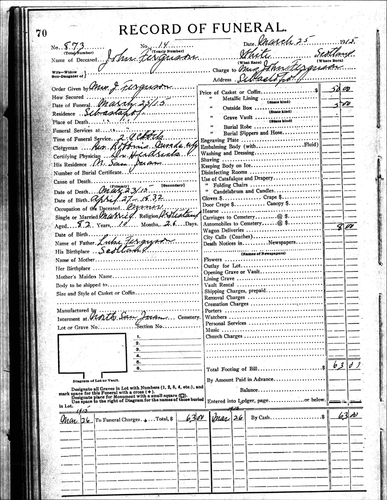 70 RECORD OF FUNERAL.
No. 873 No. 14 Date, March 25 1915
(Total Number) (Yearly Number)
Name of Deceased John Ferguson White Scotland
(What Race) (Where Born)
Wife-Widow
Son-Daughter of
Charge to Mrs John Ferguson
Address Sebastopol
Order Given by Mrs J Ferguson
How Secured
Date of Funeral March 25/15
Residence Sebastopol
Place of Death
Funeral Services at
Time of Funeral Service 2 o'clock
Clergyman Rev.
Certifying Physician
His Residence N. San Juan
Number of Burial Certificate
Cause of Death
(Secondary)
Date of Death Mar 23/15
Date of Birth April 27-1832
Occupation of the Deceased
Single or Married Married Religion Protestant
Aged 82 Years, 10 Months, 26 Days
Date of Birth
Name of Father Luke Ferguson
His Birthplace Scotland
Name of Mother
Her Birthplace
Mother's Maiden Name
Body to be shipped to
Size and Style of Casket or Coffin
Manufactured by
Interment at North San Juan Cemetery.
Lot or Grave No. Section No.
1
2
3
4
5
Diagram of Lot or Vault.
Designate all Graves in Lot with Numbers (1, 2, 3, 4, etc.), and
mark space for this Funeral with a cross (+).
Designate place for Monument with a small square (□).
Use space to the right of Diagram for the names of those buried
in Lot.
Price of Casket or Coffin $ 50 00
(State kind)
" Metallic Lining
Outside Box 5 00
(State kind)
" Grave Vault
(State kind)
" Burial Robe
(State kind)
" Burial Slippers and Hose
Engraving Plate
Embalming Body (with Fluid)
Washing and Dressing
Shaving
Keeping Body on Ice
Disinfecting Rooms
Use of Catafalque and Drapery
" Folding Chairs
" Candelabrum and Candles
Gloves $ Crape $
Door Crape $ Canopy $
Hearse
Carriages to Cemetery @ $
Automobiles to Cemetery @ $
Wagon Deliveries 8 00
City Calls (Coaches)
Death Notices in Newspapers.
(Names of Newspapers)
Flowers
Outlay for Lot
Opening Grave or Vault
Lining Grave
Vault Rental
Shipping Charges, prepaid
Removal Charges
Cremation Charges
Porters
Watchers
Personal Services
Music
Church Charges
Total Footing of Bill $ 63 00
By Amount Paid in Advance
Balance
Entered into Ledger, page or below.
1915 1915
Mar 26 To Funeral Charges Total, $ 63 00 Mar 26 By Cash $ 63 00